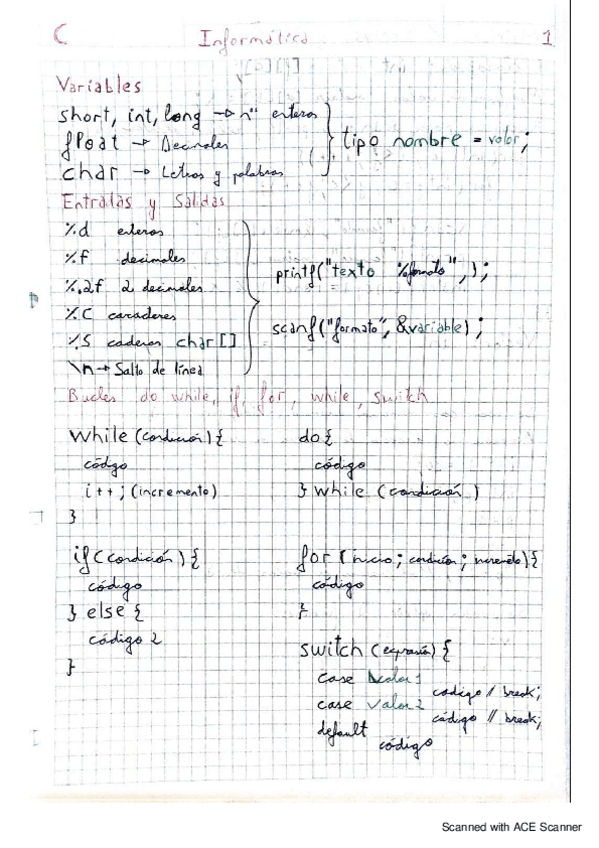 C Informática 1
Variables
short, int, long → nºs enteros
float → Decimales
char → Letras y palabras
tipo nombre = valor;
Entradas y Salidas
%d enteros
%f decimales
%.2f 2 decimales
%c caracteres
%s cadenas char[]
\n → Salto de línea
printf("texto %formato",);
scanf("formato", &variable);
Bucles do while, if, for, while, switch
while (condición) {
código
i++; (incremento)
}
do {
código
} while (condición)
if (condición) {
código
} else {
código 2
}
for (inicio; condición; incremento) {
código
}
switch (expresión) {
case valor 1
código // break;
case valor 2
código // break;
default
código
Scanned with ACE Scanner